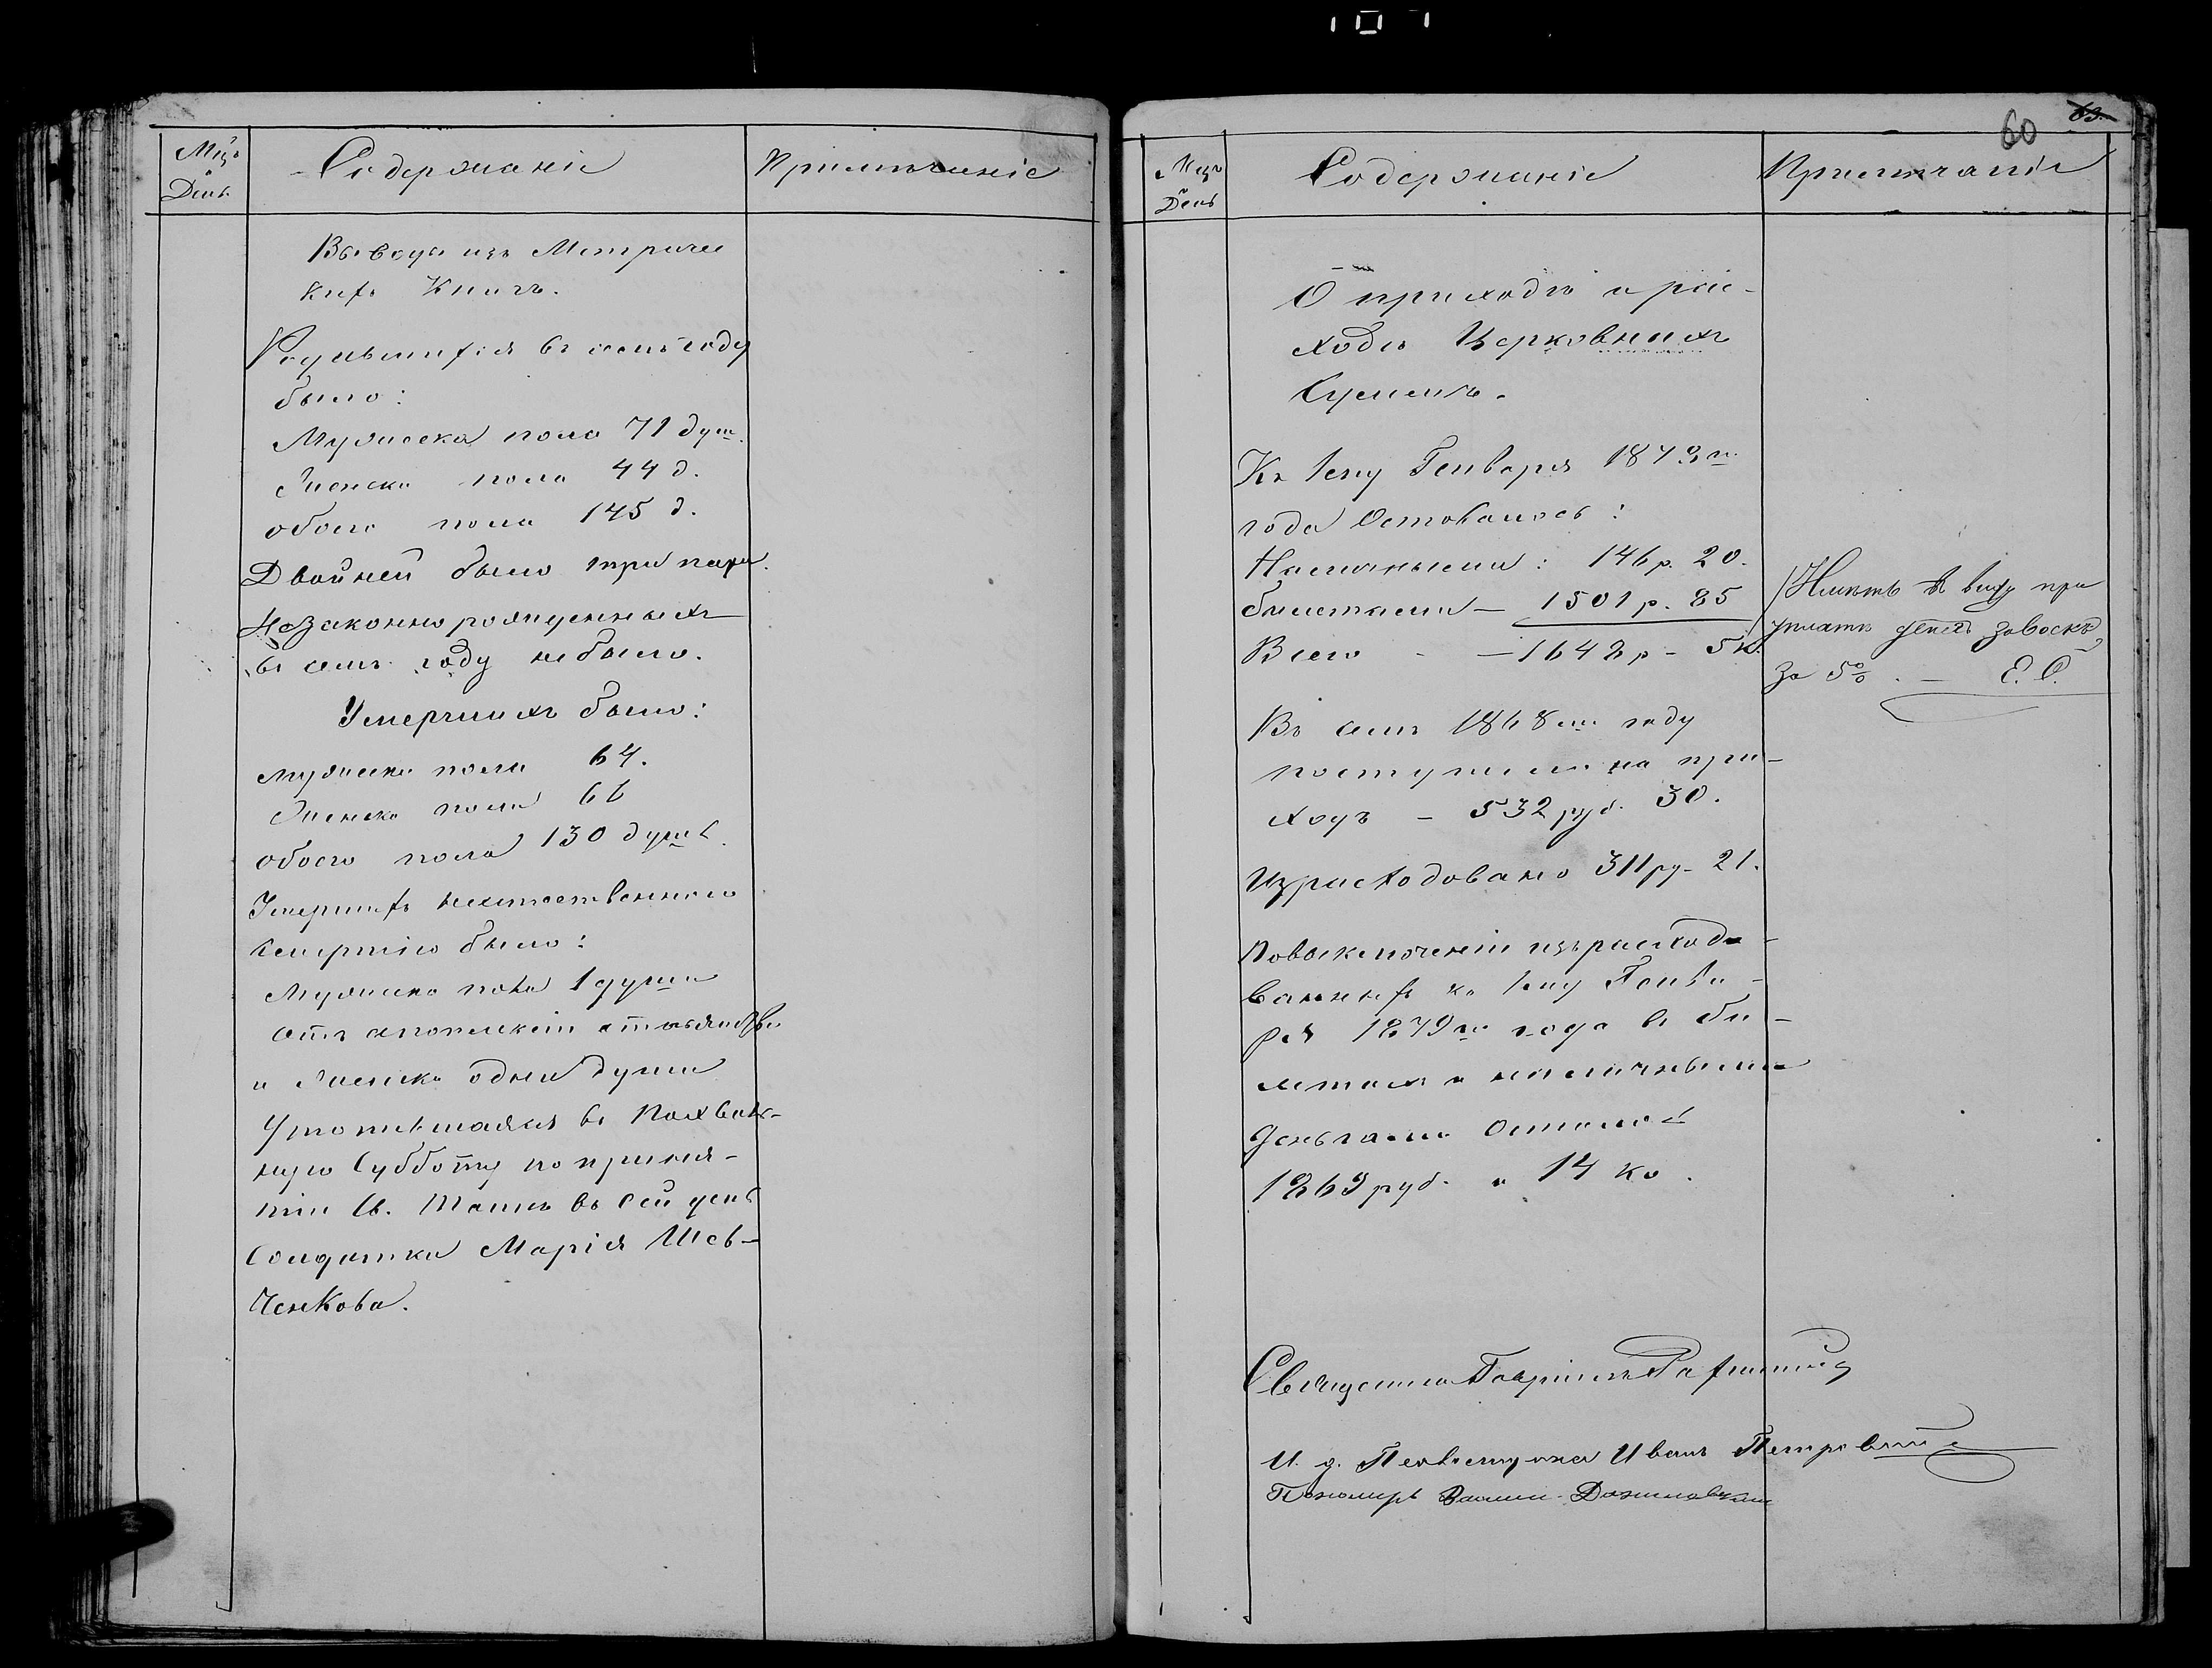 Мцъ и День
Содержаніе
Примѣчаніе
Выводъ изъ Метриче
кихъ Книгъ.
Родившихся въ семъ году
было:
Мужеска пола 71 душ.
Женска пола 44 д.
обоего пола 145 д.
Двойней было три пары.
Незаконнорожденныхъ
въ семъ году не было.
Умершихъ было:
мужеска пола 64.
Женска пола 66
обоего пола 130 душъ.
Умершихъ неестественною
смертію было:
Мужеска пола 1 душа
отъ апоплексіи
и Женска одна душа
Утопившаяся въ Похваль-
ную Субботу по приня-
тіи Св. Таинъ въ сей день
Солдатка Марія Шев-
ченкова.
60
63.
Мцъ и День
Содержаніе
Примѣчаніе
О приходѣ и рас-
ходѣ Церковныхъ
Суммъ.
Къ 1ему Генваря 1873го
года Оставалось:
Наличными: 146 р. 20.
билетами — 1501 р. 85
Всего - — 1648 р - 5 к.
Имѣть въ виду при
уплатѣ денегъ за воскъ
за 5% . — Е. О.
Въ семъ 1868мъ году
поступило на при-
ходъ – 532 руб. 30.
Израсходовано 311 ру- 21.
По выключеніи израсходо-
ванныхъ къ 1ему Генва-
ря 1879го года въ би-
летахъ и наличными
деньгами осталось
1869 руб. и 14 ко.
Священникъ Гавріилъ
И. д. Псаломщика Иванъ Петровскій
Пономарь Даниловскій